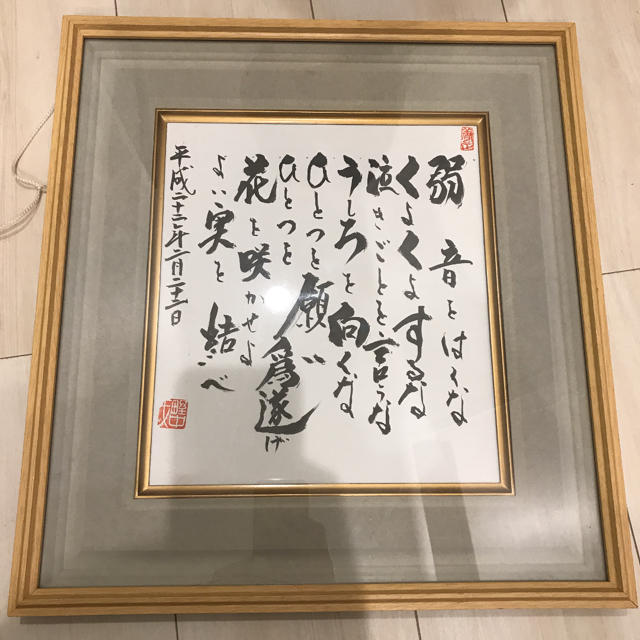 弱音をはくな
くよくよするな
泣きごとを言うな
うしろを向くな
ひとつを願い
ひとつを為遂げ
花を咲かせよ
よい実を結べ
平成二十二年二月二十二日